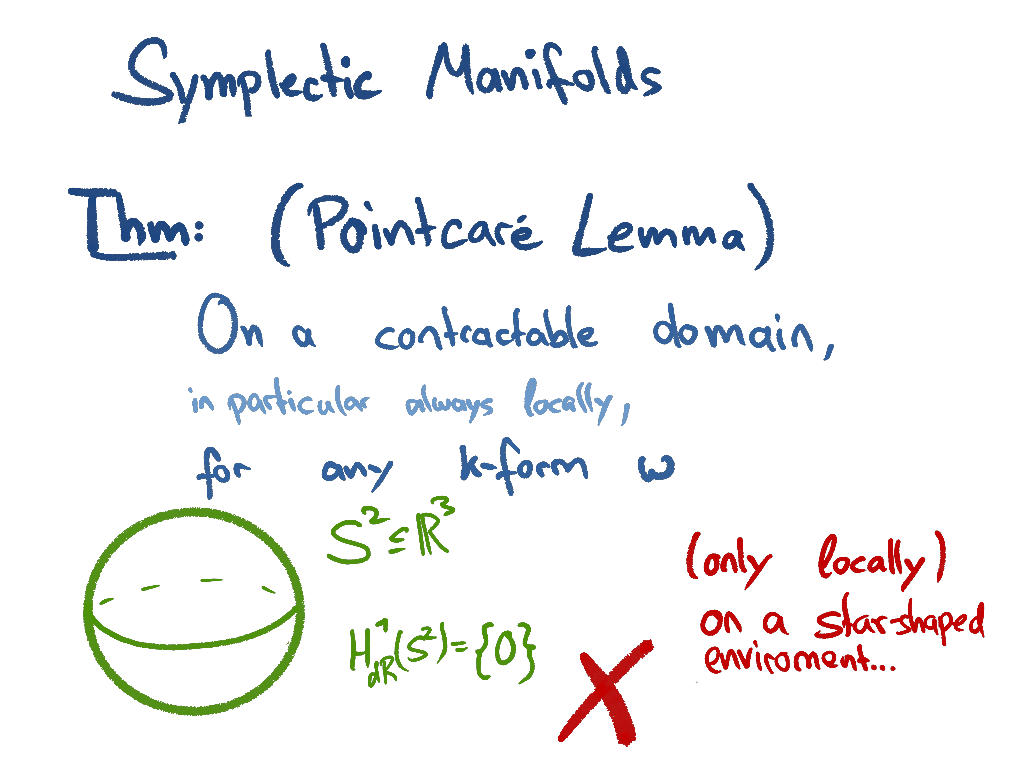 Symplectic Manifolds
Thm: (Pointcaré Lemma)
On a contractable domain,
in particular always locally,
for any k-form ω
S² ⊆ ℝ³
H¹_dR(S²) = {0}
(only locally)
on a star-shaped
enviroment...